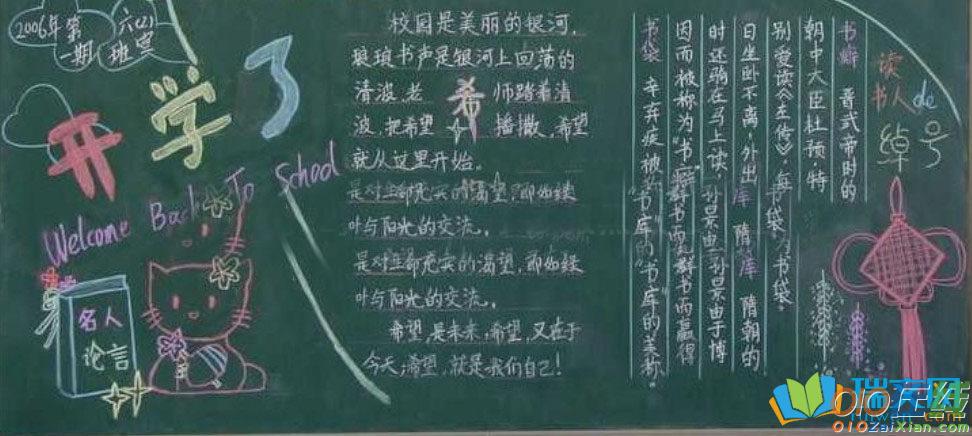 2006年第
一期
六(2)
班宣
开学了
Welcome Back To School
名人
论言
校园是美丽的银河,
琅琅书声是银河上回荡的
清波,老 希 师踏着清
波,把希望 播撒,希望
就从这里开始。
是对生命充实的渴望,即如绿
叶与阳光的交流。
是对生命充实的渴望,即如绿
叶与阳光的交流。
希望,是未来,希望,又在于
今天,希望,就是我们自己!
读
书人de
绰号
书癖 晋武帝时的
朝中大臣杜预特
别爱读《左传》,每
日坐卧不离,外出
时还驮在马上读,
因而被称为"书
书袋
书袋"为书袋。
库 隋朝的
孙景由于博
群书而赢得
"书库"的美称。
瑞文网
010在线
010ZaiXian.com